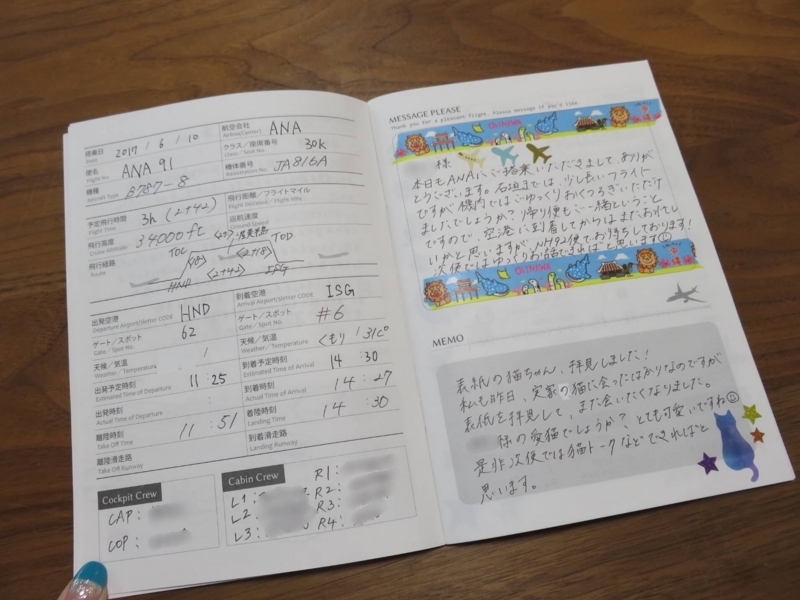 搭乗日 Date 2017 / 6 / 10
航空会社 Airline(Carrier) ANA
便名 Flight No. ANA 91
クラス／座席番号 Class / Seat No. 30K
機種 Aircraft Type B787-8
機体番号 Registration No. JA816A
予定飛行時間 Flight Time 3h (2+42)
飛行距離／フライトマイル Flight Distance / Flight Mile
飛行高度 Cruise Altitude 34000ft
巡航速度 Ground Speed
飛行経路 Route
TOC
TOD
<18>
<2+18>
<2+42>
HND
ISG
出発空港 Departure Airport/3letter CODE HND
到着空港 Arrival Airport/3letter CODE ISG
ゲート／スポット Gate / Spot No. 62
ゲート／スポット Gate / Spot No. #6
天候／気温 Weather / Temperature /
天候／気温 Weather / Temperature くもり / 31C°
出発予定時刻 Estimated Time of Departure 11 : 25
到着予定時刻 Estimated Time of Arrival 14 : 30
出発時刻 Actual Time of Departure :
到着時刻 Actual Time of Arrival 14 : 27
離陸時刻 Take Off Time 11 : 51
着陸時刻 Landing Time 14 : 30
離陸滑走路 Take Off Runway
到着滑走路 Landing Runway
Cockpit Crew
CAP :
COP :
Cabin Crew
L1 :
L2 :
L3 :
R1 :
R2 :
R3 :
R4 :
MESSAGE PLEASE
Thank you for a pleasant flight. Please message if you'd like.
OKINAWA
様
本日もANAにご搭乗いただきまして、ありが
とうございます。石垣までは、少し長いフライト
ですが機内ではごゆっくりおくつろぎいただけ
ましたでしょうか？帰り便もご一緒ということ
ですので、空港に到着してからはまたお忙し
いかと思いますが、NH92便でお待ちしております！
次便ではゆっくりお話できればと思います
OKINAWA
MEMO
表紙の猫ちゃん、拝見しました！
私も昨日、実家の猫に会ったばかりなのですが
表紙を拝見して、また会いたくなりました。
様の愛猫でしょうか？とても可愛いですね
是非次便では猫トークなどできればと
思います。